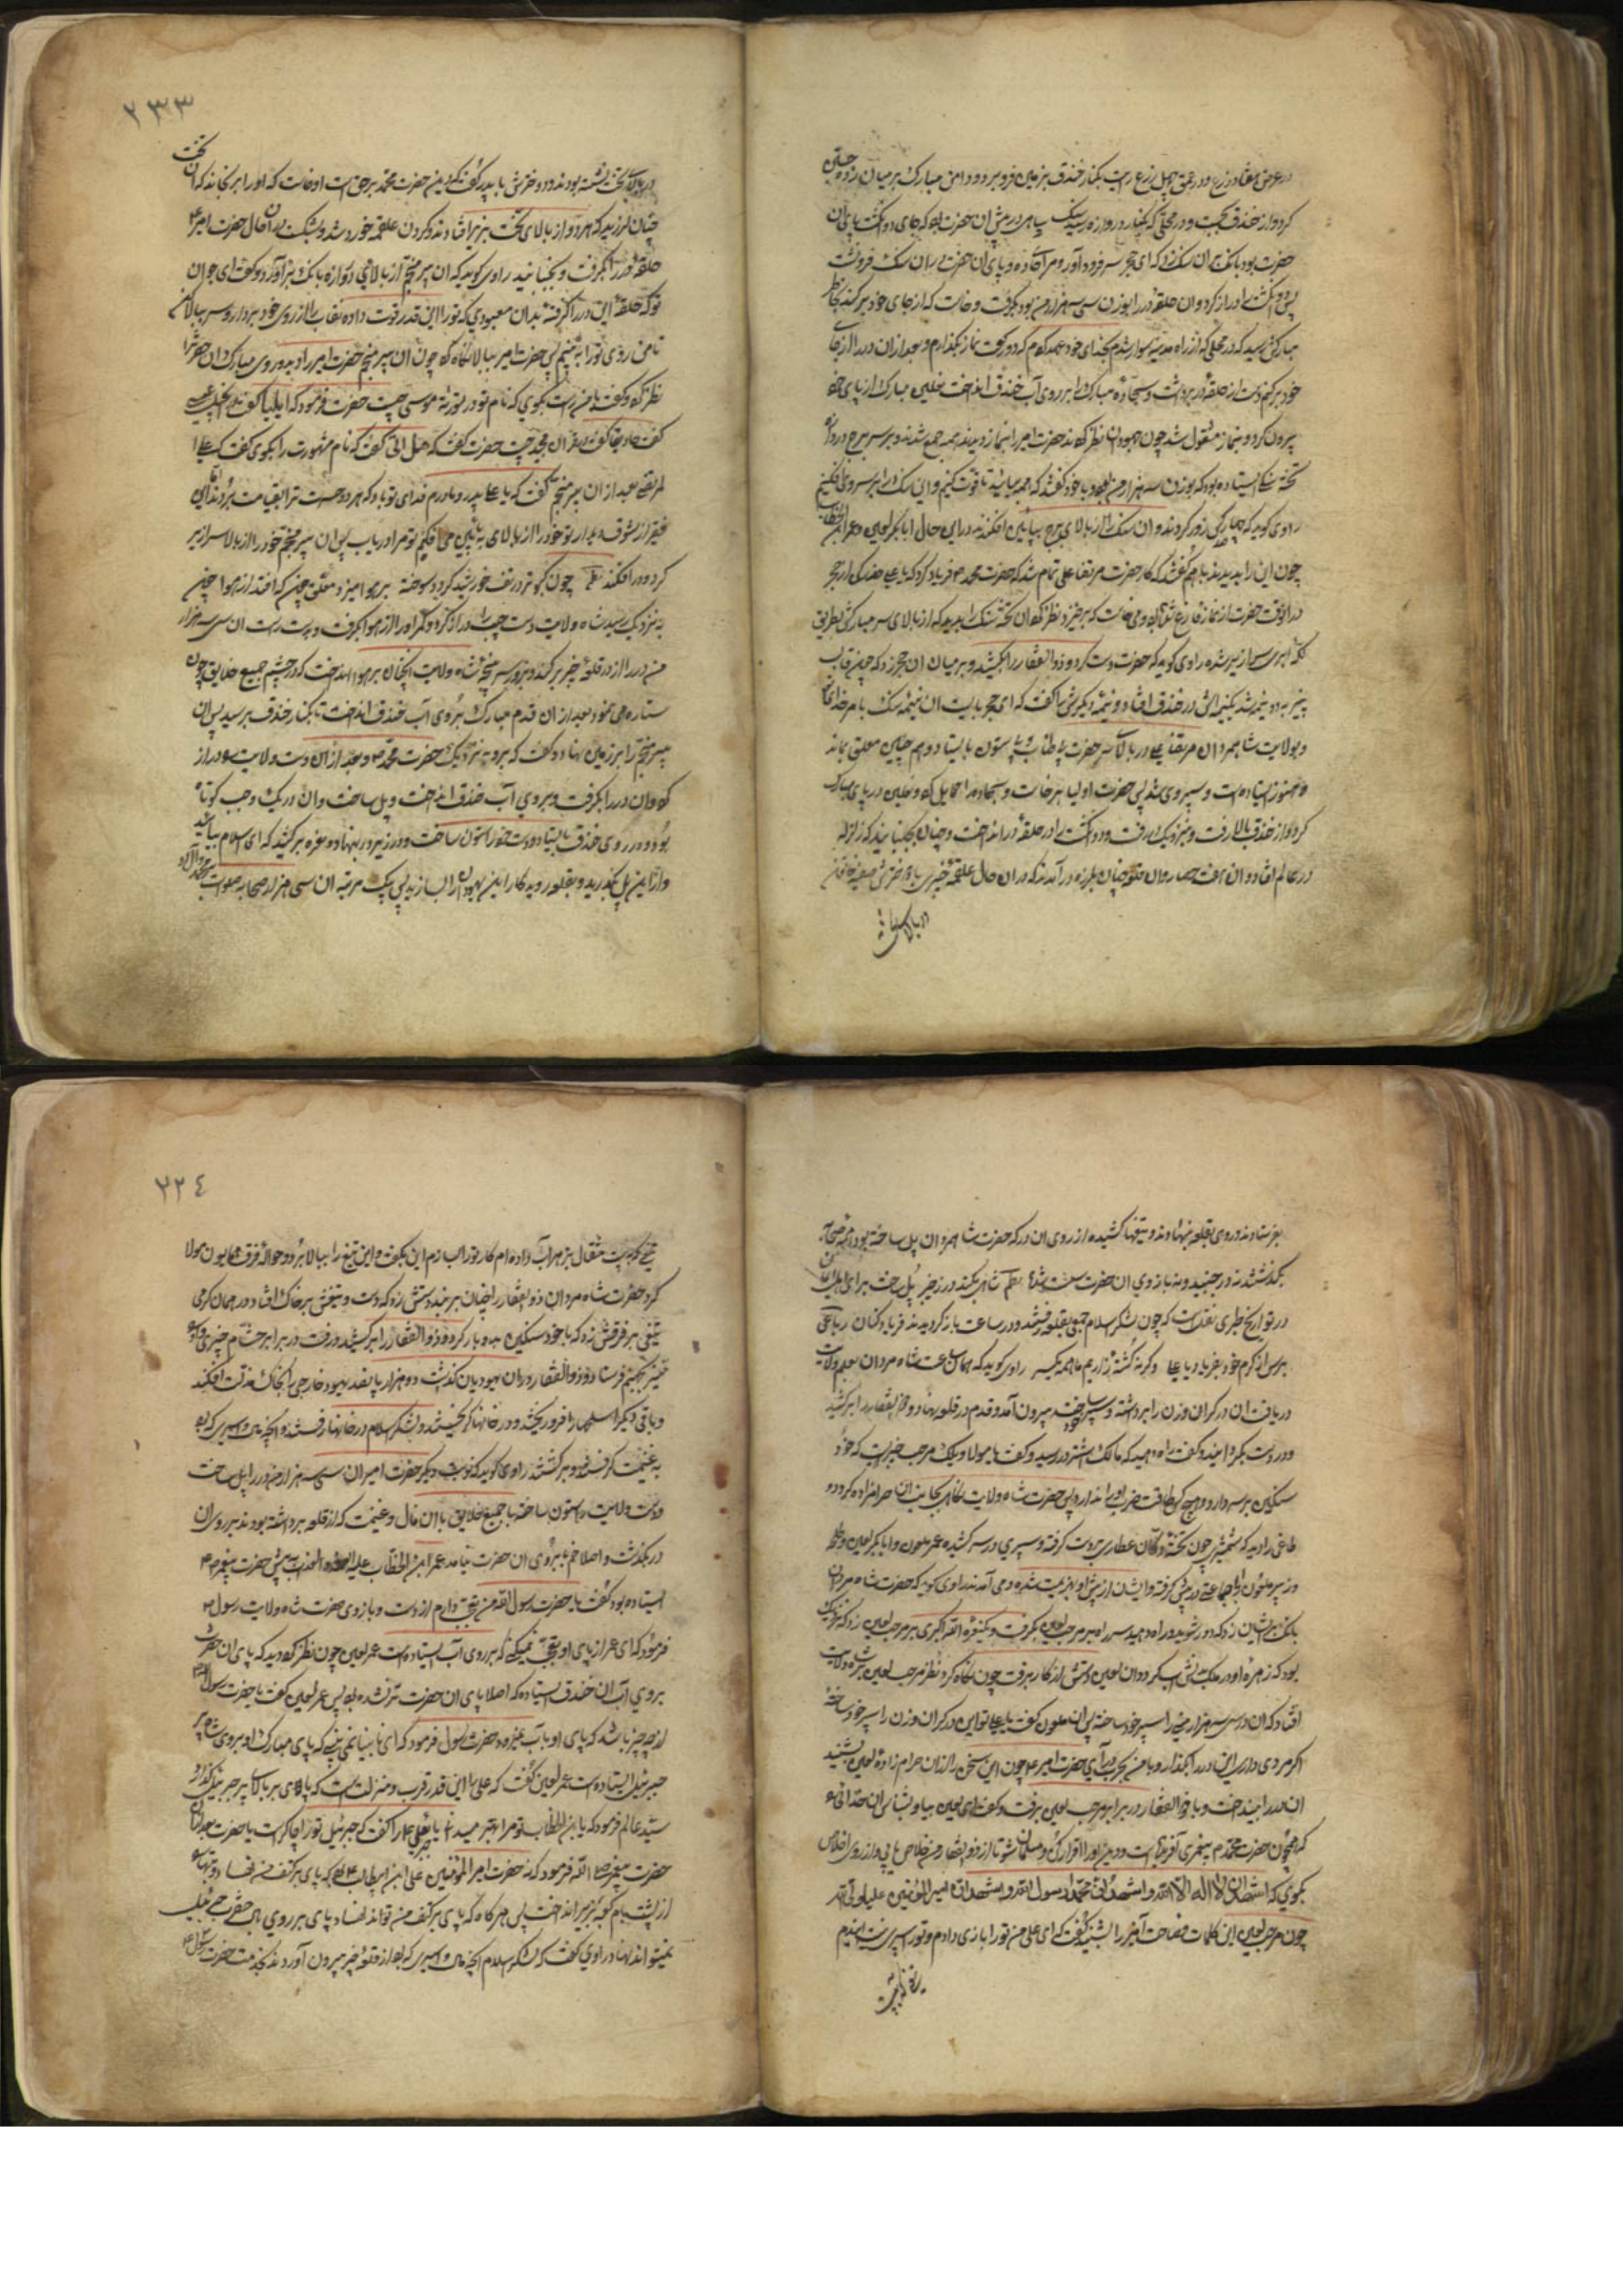 در عرض هفتاد زرع و در عمق چهل زرع راست بکنار خندق بزمین فرو برد و دامن مبارک بر میان زده جستی
کرد و از خندق بجست و در محلی که بکنار دروازه رسید سنک سیاهی در پیش ان حضرت بود که جای دو انکشت پای ان
حضرت بود بانک بران سنک زد که ای حجر سر فرود آور و مرا جا ده و پای ان حضرت در ان سنک فرو نشست
پس دو انکشت را دراز کرد و ان حلقه در را بوزن سی هزار من بود بکرفت و خاست که از جای خود بر کند بخاطر
مبارکش رسید که در محلی که از راه مدینه سوار شدم بخدای خود عهد کردم که دو رکعت نماز بکذارم و بعد از ان در را از جای
خود بر کنم دست از حلقه در برداشت و سجاده مبارک را بر روی آب خندق انداخت نعلین مبارک از پای خود
بیرون کرد و بنماز مشغول شد چون جهودان نظر کردند حضرت امیر را بنماز دیدند همه جمع شدند و بر سر برج دروازه
تخته سنکی ایستاده بود که بوزن سه هزار من بود با خود کفتند که همه بیائید تا قوت کنیم و این سنک را بر سر وی افکنیم
راوی کوید که جهودان زور کردند و ان سنک را از بالای برج بپائین افکندند در این حال ابابکر لعین و عمر ابن الخطاب
چون این را بدیدند با هم کفتند که کار حضرت مرتضا علی تمام شد که حضرت محمد ص فریاد کرد که یا علی حذر کن از حجر
در انوقت حضرت از نماز فارغ شده بود و می خاست که بر خیزد نظر کرد ان تخته سنک را بدید که از بالای سر مبارکش بطریق
لکه ابری سرازیر شده راوی کوید که حضرت دست کرد و ذوالفقار را بکشید و بر میان ان حجر زد که چون قالب
پنیر بدو نیمه شد یک نیمه اش در خندق افتاد و نیمه دیکرش را کفت که ای حجر بایست ان نیمه سنک با مر خدایتعالی
و بولایت شاهمردان مرتضا علی در بالای سر حضرت بی طناب و بی ستون بایستاد و هم چنین معلق بماند
و هنوز ایستاده است و سپر وی شد پس حضرت اولیا بر خاست و سجاده را حمایل کرد و نعلین در پای مبارک
کرد و از خندق بالا رفت و بنزدیک در رفت و دو انکشت را در حلقه در انداخت و چنان بجنبانید که زلزله
در عالم افتاد و ان هفت حصار و ان قلعه چنان بلرزه در آمدند که در ان حال علقمه خیبری با دخترش صفیه خاتون
در بالای
در بالای تخت نشسته بودند و دخترش با پدر کفت که دین حضرت محمد برحق است او خاست که او را بر نجاند که ان تخت
چنان لرزید که هر دو از بالای تخت بزیر افتادند و کردن علقمه خورد شد و بشکست در ان حال حضرت امیر ع
حلقه در را بکرفت و بجنبانید راوی کوید که ان پیر منجم از بالای دروازه بانک بر آورد و کفت ای جوان
تو که حلقه این در را کرفته بدان معبودی که تو را این قدر قوت داده نقاب را از روی خود بردار و سر ببالا کن
تا من روی تو را به بینم پس حضرت امیر ببالا نکاه کرد چون ان پیر منجم حضرت امیر را دید و روی مبارک ان حضرت را
نظر کرد و کفت با من راست بکوی که نام تو در توریة موسی چیست حضرت فرمود که ایلیا کفت در انجیل عیسی
کفت حاویا کفت در قران مجید چیست حضرت کفت که هل اتی کفت که نام مشهورت را بکوی کفت که علی
المرتضی بعد از ان پیر منجم کفت که یا علی پدر و مادرم فدای تو باد که هر دو دست ترا بقیامت برند تا این
فقیر از شوق دیدار تو خود را از بالای به پائین می افکنم تو مرا دریاب پس ان پیر منجم خود را از بالا سرازیر
کرد و در افکند نظم چون کبوتر در تف خورشید کردد سوخته بر هوا میزد معلق چون که افتد از هوا چون
به نزدیک رسید شاه ولایت دست چپ را دراز کرد و کمر او را از هوا بکرفت و بدست راست ان سی هزار
من در را از در قلعه خیبر بر کند و بزور سر پنجه شاه ولایت انچنان بر هوا انداخت که در چشم جمیع خلایق چون
ستاره می نمود بعد از ان قدم مبارک بر روی آب خندق انداخت تا بکنار خندق برسید پس ان
پیر منجم را بر زمین نهاد و کفت که برو به نزدیک حضرت محمد ص و بعد از ان دست ولایت دراز
کرد و ان در را بکرفت و بر روی آب خندق انداخت و پل ساخت و ان در یک وجب کوتاه
بود و در روی خندق بایستاد و دست خود را ستون ساخت و در زیر در بنهاد و نعره بر کشید که ای اسلام بیائید
و از این پل بکذرید و بقلعه روید کار این یهودان را بسازید پس بیک مرتبه ان سی هزار اصحابه صلوات بر محمد و آل او
۲۳۳
بفرستادند و روی بقلعه نهادند و تیغها کشیده از روی ان در که حضرت شاهمردان پل ساخته بود همه اصحابه
بکذشتند نه در جنبید و نه بازوی ان حضرت سست شد نظم شاهی بکند در ز خیبر پل ساخت برای اهل ایمان
در تواریخ طبری نقلست که چون لشکر اسلام جمعی بقلعه رفتند و در ساعت باز کردیدند فریاد کنان رباعی
برس از کرم خود بفریاد یا علی و کرنه کشته زاریم ما همه یکسر راوی کوید که همان ساعت شاه مردان بعلم ولایت
دریافت ان در کران وزن را برداشته و سپر خود ساخت بیرون آمد و قدم در قلعه نهاد و ذوالفقار را بر کشید
و در دست بکردانید و کفت راه دهید که مالک اشتر در رسید و کفت یا مولا ویلک مرحب خیبریست که خود
سنکین بر سر دارد و هیچ کس طاقت ضرب او را ندارد پس حضرت شاه ولایت نکاهی بجانب ان حرامزاده کرد و
طاغی را دید که شمشیری چون تخته دکان عطاری بدست کرفته و سپری در سر کشیده عمر ملعون و ابابکر لعین و طلحه
و زبیر ملعون با جماعتی در پیش کرفته و ایشان از پیش او بهزیمت شده و می آمدند راوی کوید که حضرت شاه مردان
بانک بر ایشان زد که دور شوید و راه دهید سر راه بر مرحب لعین بکرفت و یک نعره الله اکبری بر مرحب لعین زد که نزدیک
بود که زهره او در ملک تنش آب کردد و ان لعین دستش از کار برفت چون نکاه کرد نظر مرحب لعین بر شاه ولایت
افتاد که ان در سی هزار منی را سپر خود ساخته پس ان ملعون کفت یا علی تو این در کران وزن را سپر خود ساخته
اکر مردی داری این در را بکذار و با من بحرب در آی حضرت امیر ع چون این سخن را از ان حرام زاده لعین بشنید
ان در را بینداخت و با ذوالفقار در برابر مرحب لعین برفت و کفت ای لعین بیا و بشناس ان خدائی
که همچون حضرت محمد ص پیغمبری آفریده است و دین او را اقرار کن و مسلمان شو تا از ذوالفقار من خلاص یابی و از روی اخلاص
بکوی که اشهد ان لا اله الا الله و اشهد ان محمدا رسول الله و اشهد ان امیر المؤمنین علیا ولی الله
چون مرحب لعین این کلمات فصاحت آمیز را بشنید کفت که ای علی من تو را بازی دادم و تو را سپر نیست ایندم
تیغی که بیست مثقال بزهر آب داده ام کار تو را بسازم این بکفت و این تیغ را ببالا برد و حواله فرق همایون مولا
کرد حضرت شاه مردان ذوالفقار را چنان بر بند دستش زد که دست و تیغش بر خاک افتاد و در همان کرمی
تیغی بر فرقش زد که با خود سنکین بدو پاره کرد و ذوالفقار را بر کشید و رفت در برابر حشام خیبری و او را
نیز بجهنم فرستاد و ذوالفقار در ان یهودیان کذاشت دو هزار پانصد یهود خارجی را بخاک مذلت افکند
و باقی دیکر اسلحها را فرو ریختند و در خانها کریختند و لشکر اسلام در خانها رفتند و انچه مال و اسیری که بود
به غنیمت کرفتند و بر کشتند راوی کوید که نوبت دیکر حضرت امیر ان سی هزار من در را پل ساخت
و دست ولایت را ستون ساخته با جمیع خلایق با ان مال و غنیمت که از قلعه برداشته بودند بر روی ان
در بکذشت و اصلا خم بابروی ان حضرت نیامد عمر ابن الخطاب علیه اللعنه و العذاب به پیش حضرت پیغمبر ص
ایستاده بود کفت یا حضرت رسول الله من تعجب دارم از دست و بازوی حضرت شاه ولایت رسول ص
فرمود که ای عمر از پای او تعجب نمیکنی که بر روی آب ایستاده است عمر لعین چون نظر کرد دید که پای ان حضرت
بر روی آب ان خندق ایستاده که اصلا پای ان حضرت تر نشده بود پس عمر لعین کفت یا حضرت رسول الله
از چه چیز باشد که پای او بآب نمیرود حضرت رسول فرمود که ای نابینا نمی بینی که پای مبارک او بر روی شاه پر
جبرئیل ایستاده است عمر لعین کفت که علی را این قدر قرب و منزلت هست که پای بر بالای پر جبرئیل کذارد
سید عالم فرمود که یا ابن الخطاب تو مرا بهتر میدانی یا علی را کفت که جبرئیل تو را چاکر است یا حضرت
حضرت پیغمبر صلی الله فرمود که نه حضرت امیر المؤمنین علی ابن ابیطالب بود که پای بر کتف من نهاد و بتها را
از پشت بام کعبه بزیر انداخت پس هر کاه که پای بر کتف من تواند نهاد پای بر روی بال حضرت جبرئیل
نمیتواند نهاد راوی کفت که لشکر اسلام انچه مال و اسیری که بود از قلعه خیبر بیرون آوردند بخدمت حضرت رسول ص
۲۳٤